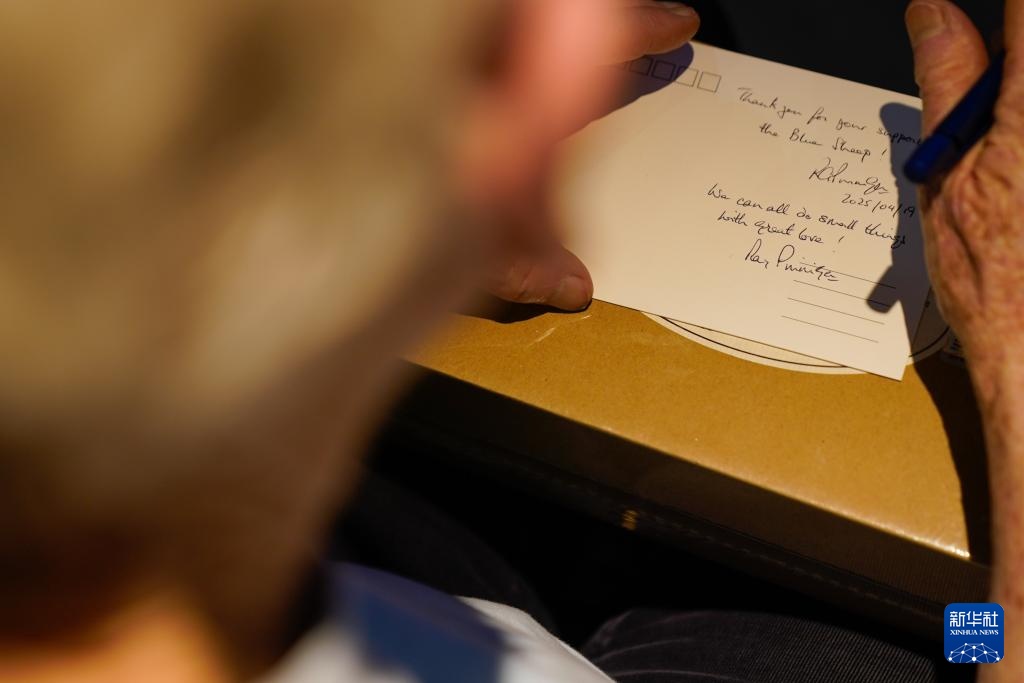 Thank you for your suppor
the Blue Sheep !
2025/04/19
We can all do small things
with great love !
Ray
新华社
XINHUA NEWS